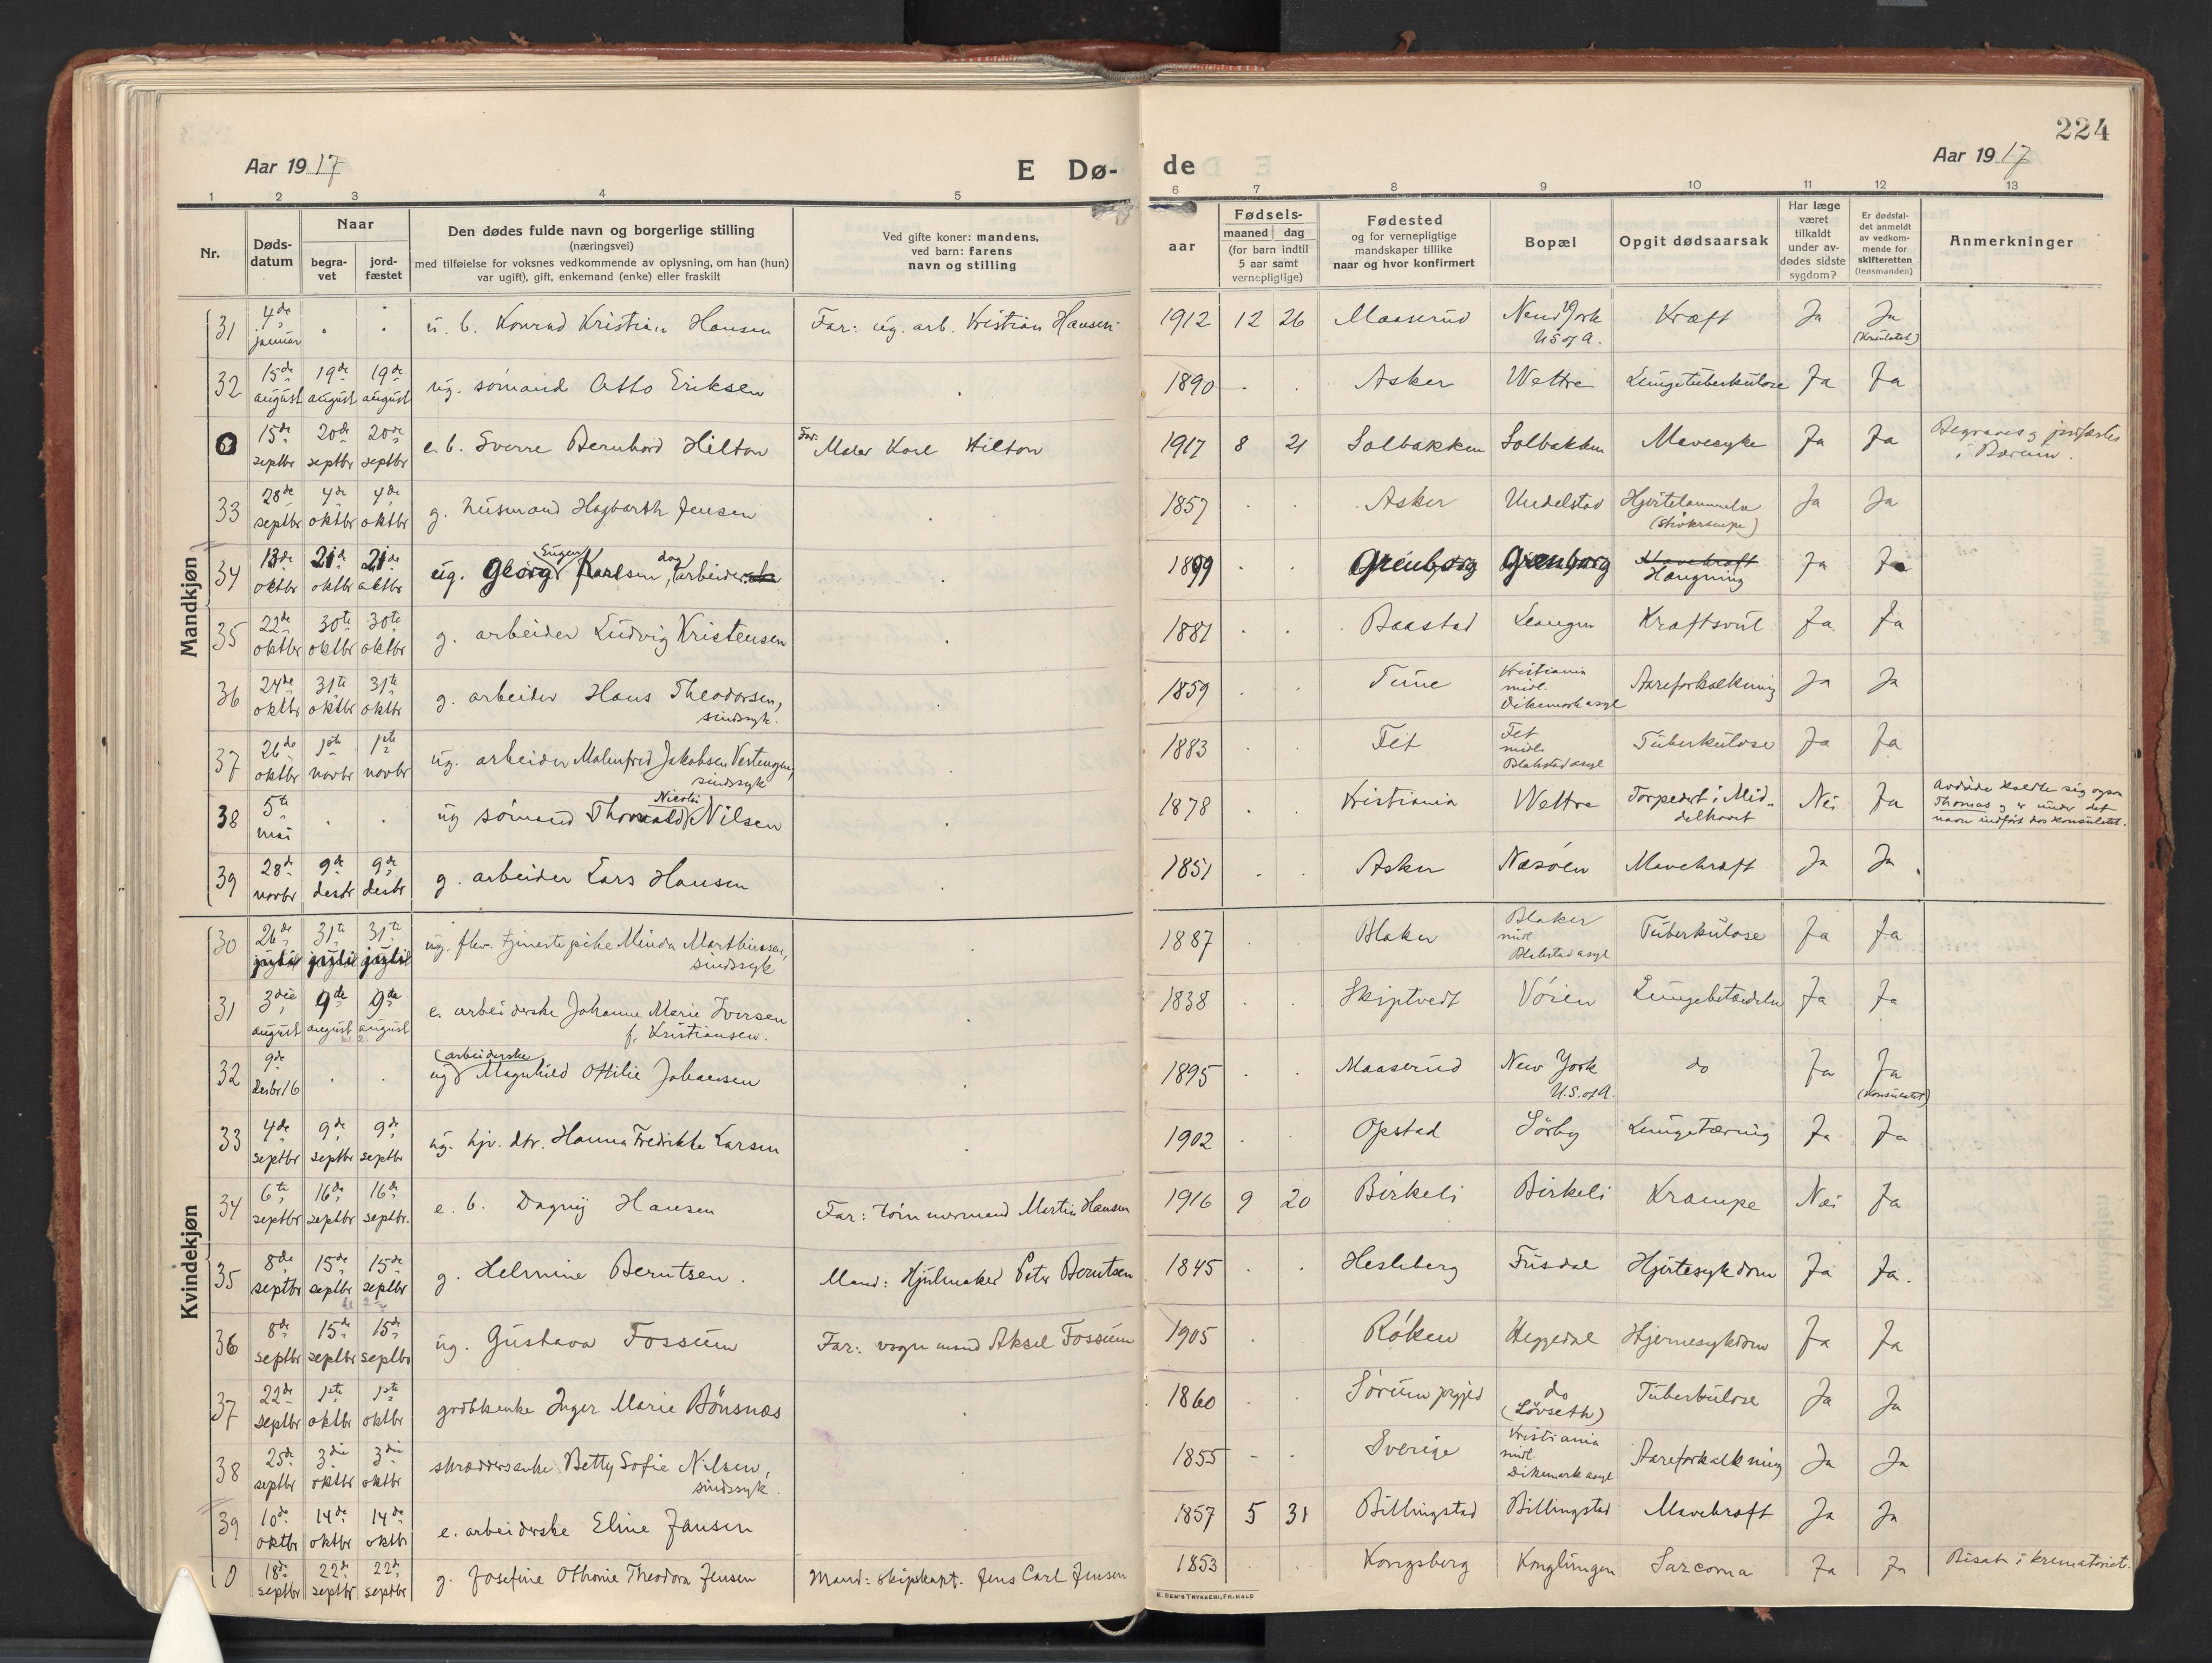 224
Aar 1917
E Dø-
de
Aar 1917
1 2 3 4 5 6 7 8 9 10 11 12 13
Nr.
Døds-
datum
Naar
begra-
vet
jord-
fæstet
Den dødes fulde navn og borgerlige stilling
(næringsvei)
med tilføielse for voksnes vedkommende av oplysning, om han (hun)
var ugift), gift, enkemand (enke) eller fraskilt
Ved gifte koner: mandens,
ved barn: farens
navn og stilling
aar
Fødsels-
maaned dag
(for barn indtil
5 aar samt
vernepligtige)
Fødested
og for vernepligtige
mandskaper tillike
naar og hvor konfirmert
Bopæl
Opgit dødsaarsak
Har læge
været
tilkaldt
under av-
dødes sidste
sygdom?
Er dødsfal-
det anmeldt
av vedkom-
mende for
skifteretten
(lensmanden)
Anmerkninger
Mandkjøn
31 4de januar . . u. b. Konrad Kristian Hansen Far: ug. arb. Kristian Hansen 1912 12 26 Maaserud New York U S of A. Kræft Ja Ja (Konsulatet)
32 15de august 19de august 19de august ug. sømand Otto Eriksen . 1890 . . Asker Wettre Lungetuberkulose Ja Ja
0 15de septbr 20de septbr 20de septbr e. b. Sverre Bernhard Hilton Far: Maler Karl Hilton 1917 8 21 Solbakken Solbakken Mavesyke Ja Ja Begraves og jordfæstes i Bærum.
33 28de septbr 4de oktbr 4de oktbr g. husmand Hagbarth Jensen . 1857 . . Asker Undelstad Hjertelammelse (Stivkrampe) Ja Ja
34 13de oktbr 21de oktbr 21de oktbr ug. Georg Eugen Karlsen, dagarbeider 1899 . . Grønborg Grønborg Mavekræft Hængning Ja Ja
35 22de oktbr 30te oktbr 30te oktbr g. arbeider Ludvig Kristensen . 1881 . . Baastad Leangen Kræftsvul Ja Ja
36 24de oktbr 31te oktbr 31te oktbr g. arbeider Hans Theodorsen, sindssyk. . 1859 . . Tune Kristiania midl. Dikemark asyl Aareforkalkning Ja Ja
37 26de oktbr 1ste novbr 1ste novbr ug. arbeider Malmfred Jakobsen Vestengen, sindssyk . 1883 . . Fet Fet midl. Blakstad asyl Tuberkulose Ja Ja
38 5te mai . . ug sømand Thorvald Nicolai Nilsen 1878 . . Kristiania Wettre Torpedert i Mid- delhavet Nei Ja Avdøde kaldte sig ogsaa Thomas og er under det navn indført hos konsulatet.
39 28de novbr 9de desbr 9de desbr g. arbeider Lars Hansen . 1851 . . Asker Næsøen Mavekræft Ja Ja
Kvindekjøn
30 26de juli 31te juli 31te juli ug. flev. tjenestepike Minda Marthinsen, sindssyk . 1887 . . Blaker Blaker midl. Blakstad asyl Tuberkulose Ja Ja
31 3die august 9de august 9de august e. arbeiderske Johanne Marie Iversen f. Kristiansen. . 1838 . . Skiptvedt Vøien Lungebetændelse Ja Ja
32 9de desbr 16 . . ug. arbeiderske Magnhild Ottilie Johansen . 1895 . . Maaserud New York U.S. of A. do Ja Ja (Konsulatet)
33 4de septbr 9de septbr 9de septbr ug. hjv. dtr. Hanna Fredrikke Larsen . 1902 . . Opstad Sørby Lungetæring Ja Ja
34 6te septbr 16de septbr 16de septbr. e. b. Dagny Hansen Far: tømmermand Martin Hansen 1916 9 20 Birkeli Birkeli Krampe Nei Ja
35 8de septbr 15de septbr 15de septbr g. Helmine Berntsen. Mand: Hjulmaker Peter Berntsen 1845 . . Hesleberg Fusdal Hjertesykdom Ja Ja.
36 8de septbr 15de septbr 15de septbr ug. Gustava Fossum Far: vognmand Aksel Fossum 1905 . . Røken Heggedal Hjernesykdom Ja Ja
37 22de septbr 1ste oktbr 1ste oktbr grdbkenke Inger Marie Bønsnæs . 1860 . Sørum prgjld do (Løvseth) Tuberkulose Ja Ja
38 25de septbr 3die oktbr 3die oktbr skræddersenke Betty Sofie Nilsen, sindssyk. . 1855 - - Sverige Kristiania midl. Dikemark asyl Aareforkalkning Ja Ja
39 10de oktbr 14de oktbr 14de oktbr e. arbeiderske Eline Jansen . 1857 5 31 Billingstad Billingstad Mavekræft Ja Ja
0 18de septbr 22de septbr 22de septbr g. Josefine Othonie Theodora Jensen Mand: skipskapt. Jens Carl Jensen 1853 . . Kongsberg Konglungen Sarcoma Ja Ja Bisat i krematoriet.